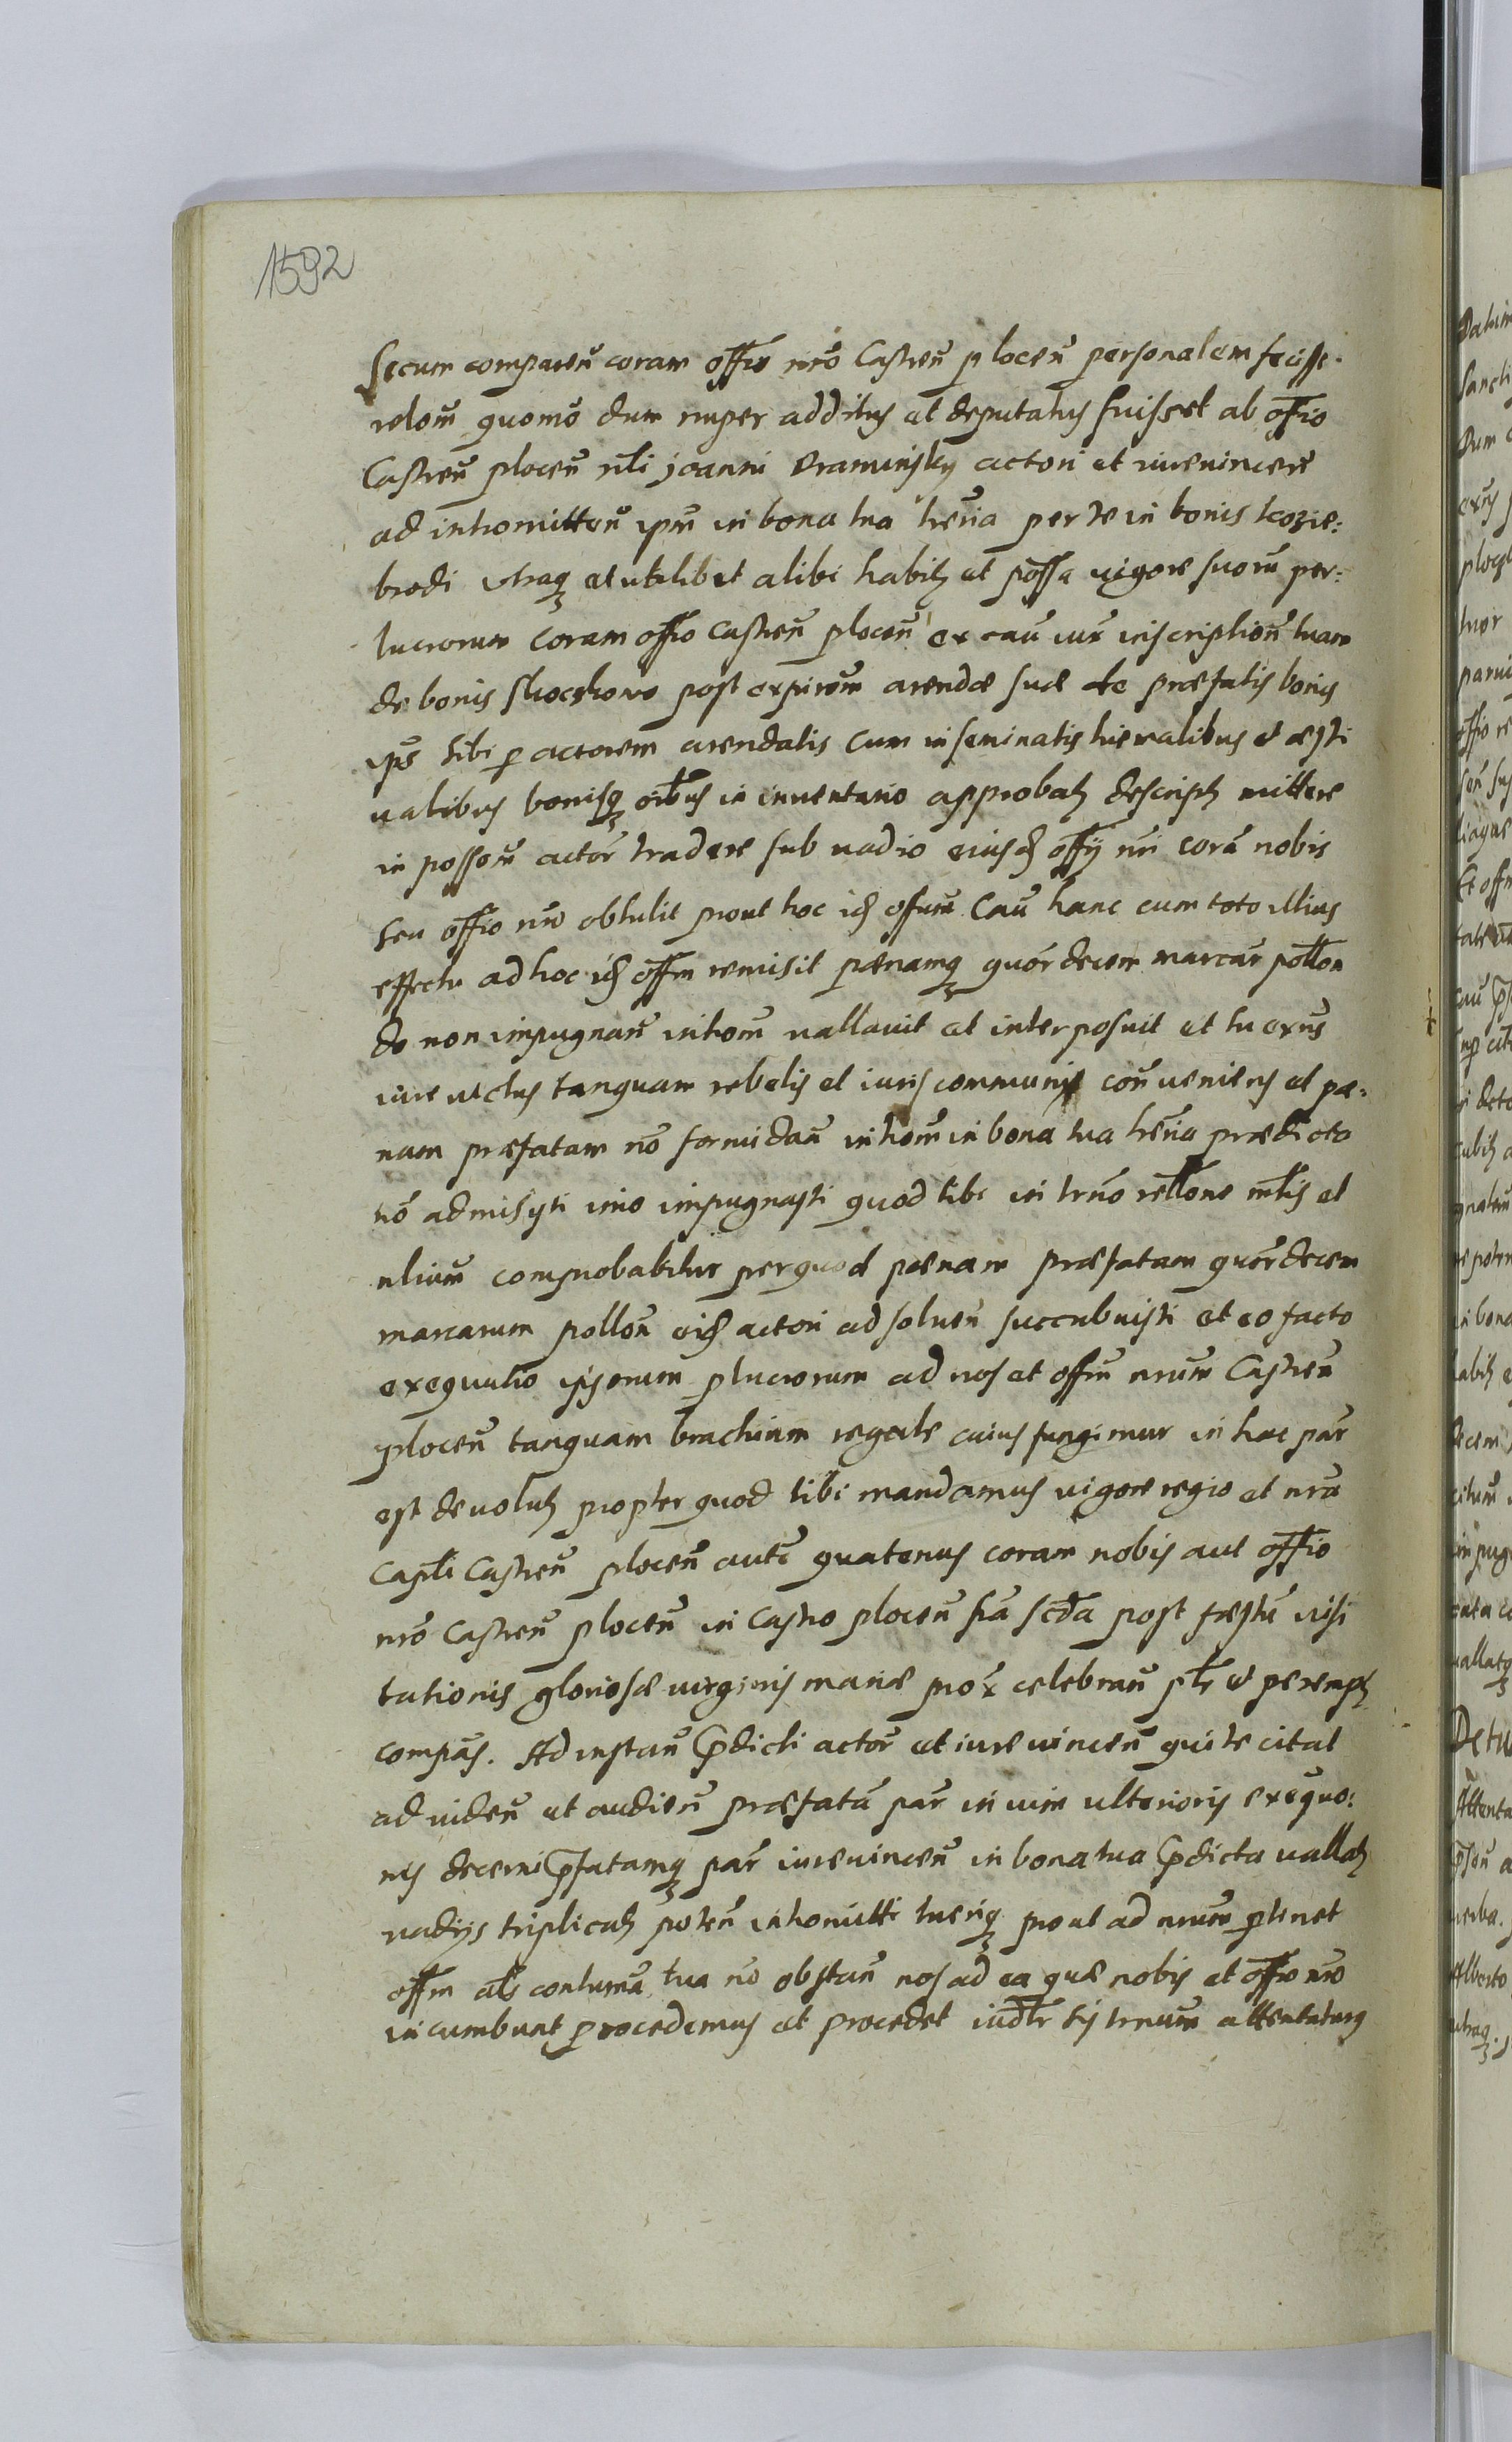 1592
Secum comparen̄ coram offio nr̄o Castren̄ plocen̄ personalem fecisse
relom̄ quomō dum nuper additus et deputatus fuisset ab offio
Castren̄ plocen̄ nl̄i joanni Kraminsky actori et iurevincere
ad intromitten̄ ipm̄ in bona tua hēria per te in bonis kozie:
brodi utraq̨ et utilibet alibi habitȝ et possa vigore suorū per:
lucrorum coram offio castren̄ plocen̄ ex cau iur inscription̄ tuam
de bonis post expirem̄ arendæ suæ de præfatis bonis
ips̄ tibi p actorem arendatis cum inseminatis hiemalibus et æsti
valibus bonisq̨ oībus in inventario approbatȝ descriptȝ mittere
in possom̄ actor̄ tradere sub vadio eiusdȝ offij nr̄i corā nobis
seu offio nr̄o obtulit prout hoc idȝ offum. Cau hanc cum toto illius
effectu ad hoc idȝ offm remisit pænamq̨ quordecem marcar̄ pollon
de non impugnan̄ introm̄ vallavit et interposuit et tu exn̄s
iure victus tanquam rebelis et iuris communis con̄veniens et pæ:
nam præfatam nō formidan̄ introm̄ in bona tua hēria prædicto
nō admisisti imo impugnasti quod tibi in trn̄o rellone mlīs et
nlium̄ comprobabitur perquod pænam præfatam quordecem
marcarum pollon̄ eidȝ actori ad solven̄ succubuisti et eo facto
exequutio ipsorum plucrorum ad nos et offm̄ nrum̄ Castren̄
plocen̄ tanquam brachium regale cuius fungimur in hac par̄
est devolutȝ propter quod tibi mandamus vigore regio et nr̄a
capl̄i Castren̄ plocen̄ autē quatenus coram nobis aut offio
nr̄o Castren̄ plocen̄ in castro plocen̄ fr̄a scd̄a post fæstū visi
tationis gloriosæ virginis mariæ prox celebran̄ pl̄r et perempȝ
compās. Ad instan̄ p̄dicti actor̄ et iure vincen̄ qui te citat
ad viden̄ et audien̄ præfatā par̄ in vim ulterioris exequo:
nis decerni p̄fatamq̨ par̄ iurevincen̄ in bona tua p̄dicta vallatȝ
vadijs triplicatȝ poten̄ intromitti tueriq̨ prout ad nrum̄ ptinet
offm als contumā tua nō obstan̄ nos ad ea quæ nobis et offio nr̄o
incumbunt procedemus et procedet iudl̄r trn̄um attentaturus